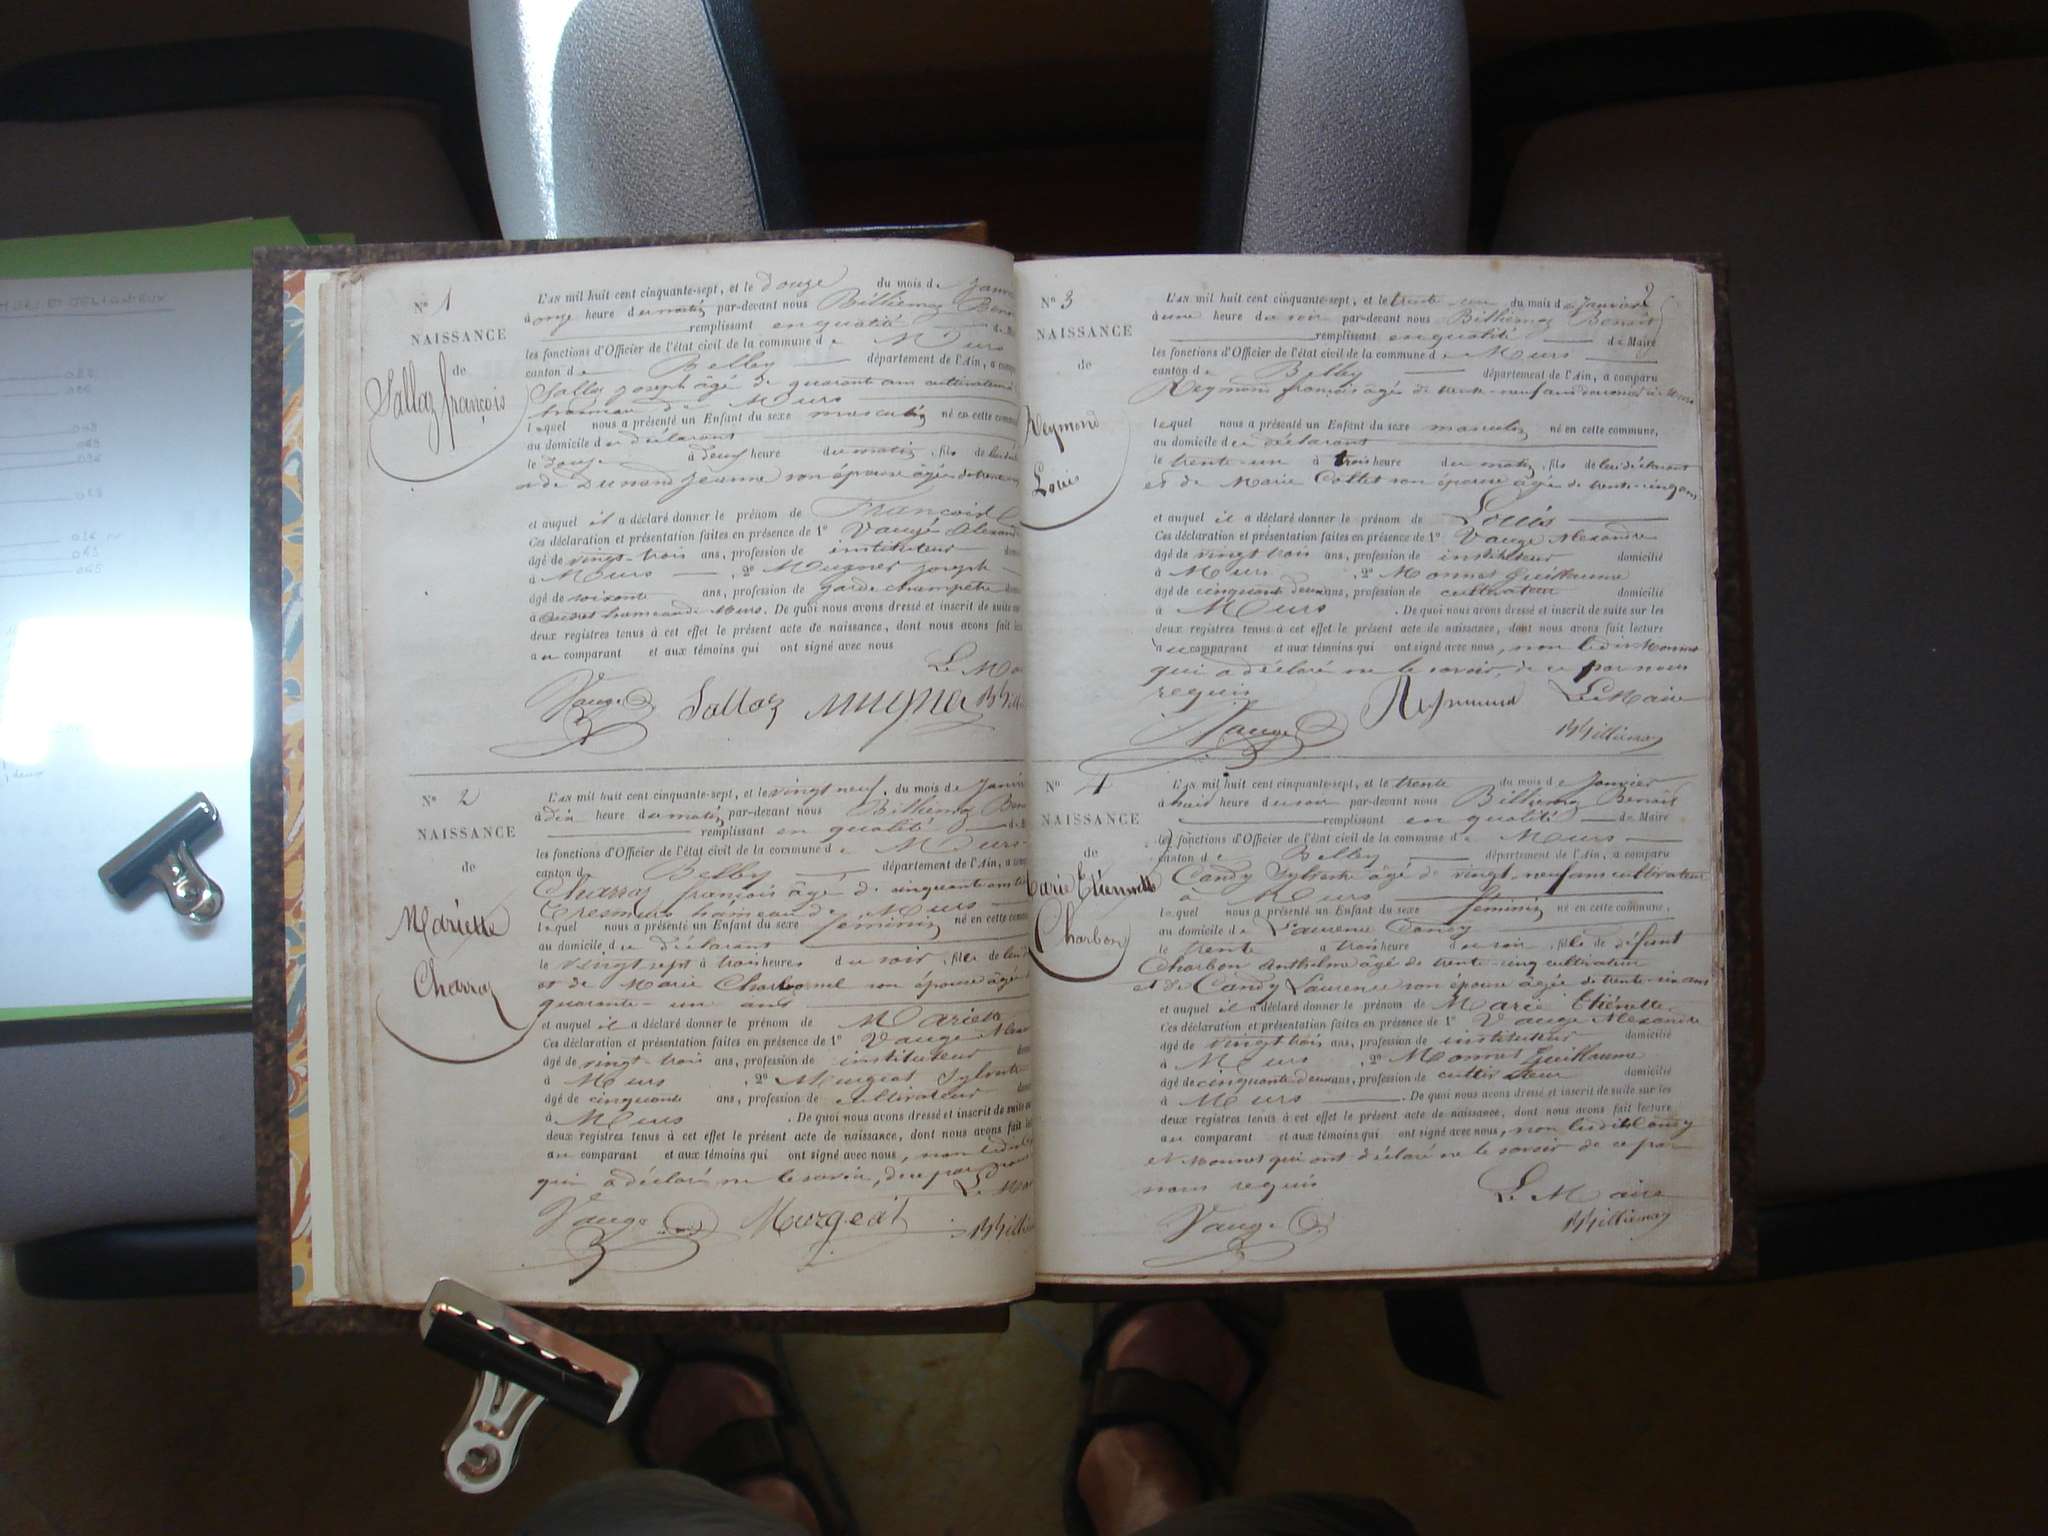 N° 1
NAISSANCE
de
Sallaz françois
L'AN mil huit cent cinquante-sept, et le Douze du mois de Janv
à onze heure du matin par-devant nous Billiemaz Ben
remplissant en qualité de M
les fonctions d'Officier de l'état civil de la commune de Murs
canton de Belley département de l'Ain, a comp
Sallaz joseph âgé de quarante ans cultivateur
hameau de Murs
lequel nous a présenté un Enfant du sexe masculin né en cette comm
au domicile du déclarant
le douze à deux heure du matin, fils de
et de Durand Jeanne son épouse âgée de
et auquel il a déclaré donner le prénom de François
Ces déclaration et présentation faites en présence de 1° Vauge Alexand
âgé de vingt-trois ans, profession de instituteur
à Murs 2° Mugner joseph
âgé de soixante ans, profession de garde champêtre
à hameau de Murs. De quoi nous avons dressé et inscrit de suite sur
deux registres tenus à cet effet le présent acte de naissance, dont nous avons fait lec
au comparant et aux témoins qui ont signé avec nous
Le Mai
Vauge Sallaz Mugner Billi
N° 2
NAISSANCE
de
Mariette
Charraz
L'AN mil huit cent cinquante-sept, et le vingt neuf, du mois de Janvie
à dix heure du matin par-devant nous Billiemaz Ben
remplissant en qualité de M
les fonctions d'Officier de l'état civil de la commune de Murs
canton de Belley département de l'Ain, a com
Charraz françois âgé de cinquante ans
hameau de Murs
lequel nous a présenté un Enfant du sexe feminin né en cette commu
au domicile du déclarant
le vingt sept à trois heures du soir, fille de
et de Marie Charbonnel son épouse âgée
quarante-un ans
et auquel il a déclaré donner le prénom de Mariette
Ces déclaration et présentation faites en présence de 1° Vauge Alexa
âgé de vingt-trois ans, profession de instituteur
à Murs, 2° Murgeat Sylvestre
âgé de cinquante ans, profession de cultivateur
à Murs. De quoi nous avons dressé et inscrit de suite su
deux registres tenus à cet effet le présent acte de naissance, dont nous avons fait lec
au comparant et aux témoins qui ont signé avec nous, non ledit
qui a déclaré ne le savoir, de ce par nous
Le Mai
Vauge Murgeat Billie
2
N° 3
NAISSANCE
de
Reymond
Louis
L'AN mil huit cent cinquante-sept, et le trente-un du mois de Janvier
à une heure du soir par-devant nous Billiemaz Benoît
remplissant en qualité de Maire
les fonctions d'Officier de l'état civil de la commune de Murs
canton de Belley département de l'Ain, a comparu
Reymond françois âgé de trente-neuf ans demeurant à Murs
lequel nous a présenté un Enfant du sexe masculin né en cette commune,
au domicile du déclarant
le trente-un à trois heure du matin, fils de lui déclarant
et de Marie Collet son épouse âgée de trente-cinq ans
et auquel il a déclaré donner le prénom de Louis
Ces déclaration et présentation faites en présence de 1° Vauge Alexandre
âgé de vingt trois ans, profession de instituteur domicilié
à Murs, 2° Monnet Guillaume
âgé de cinquante deux ans, profession de cultivateur domicilié
à Murs. De quoi nous avons dressé et inscrit de suite sur les
deux registres tenus à cet effet le présent acte de naissance, dont nous avons fait lecture
au comparant et aux témoins qui ont signé avec nous, non ledit Monnet
qui a déclaré ne le savoir, de ce par nous
requis
Reymond Le Maire
Vauge Billiemaz
N° 4
NAISSANCE
de
Marie Etiennette
Charbon
L'AN mil huit cent cinquante-sept, et le trente du mois de Janvier
à huit heure du soir par-devant nous Billiemaz Benoît
remplissant en qualité de Maire
les fonctions d'Officier de l'état civil de la commune de Murs
canton de Belley département de l'Ain, a comparu
Candy Sylvestre âgé de vingt-neuf ans cultivateur
à Murs
lequel nous a présenté un Enfant du sexe feminin né en cette commune,
au domicile de Laurence Candy
le trente à trois heure du soir, fille de défunt
Charbon Anthelme âgé de trente-cinq cultivateur
et de Candy Laurence son épouse âgée de trente-un ans
et auquel il a déclaré donner le prénom de Marie Etiénette
Ces déclaration et présentation faites en présence de 1° Vauge Alexandre
âgé de vingt trois ans, profession de instituteur domicilié
à Murs, 2° Monnet Guillaume
âgé de cinquante deux ans, profession de cultivateur domicilié
à Murs. De quoi nous avons dressé et inscrit de suite sur les
deux registres tenus à cet effet le présent acte de naissance, dont nous avons fait lecture
au comparant et aux témoins qui ont signé avec nous, non lesdits Candy
et Monnet qui ont déclaré ne le savoir de ce par
nous requis
Le Maire
Vauge Billiemaz